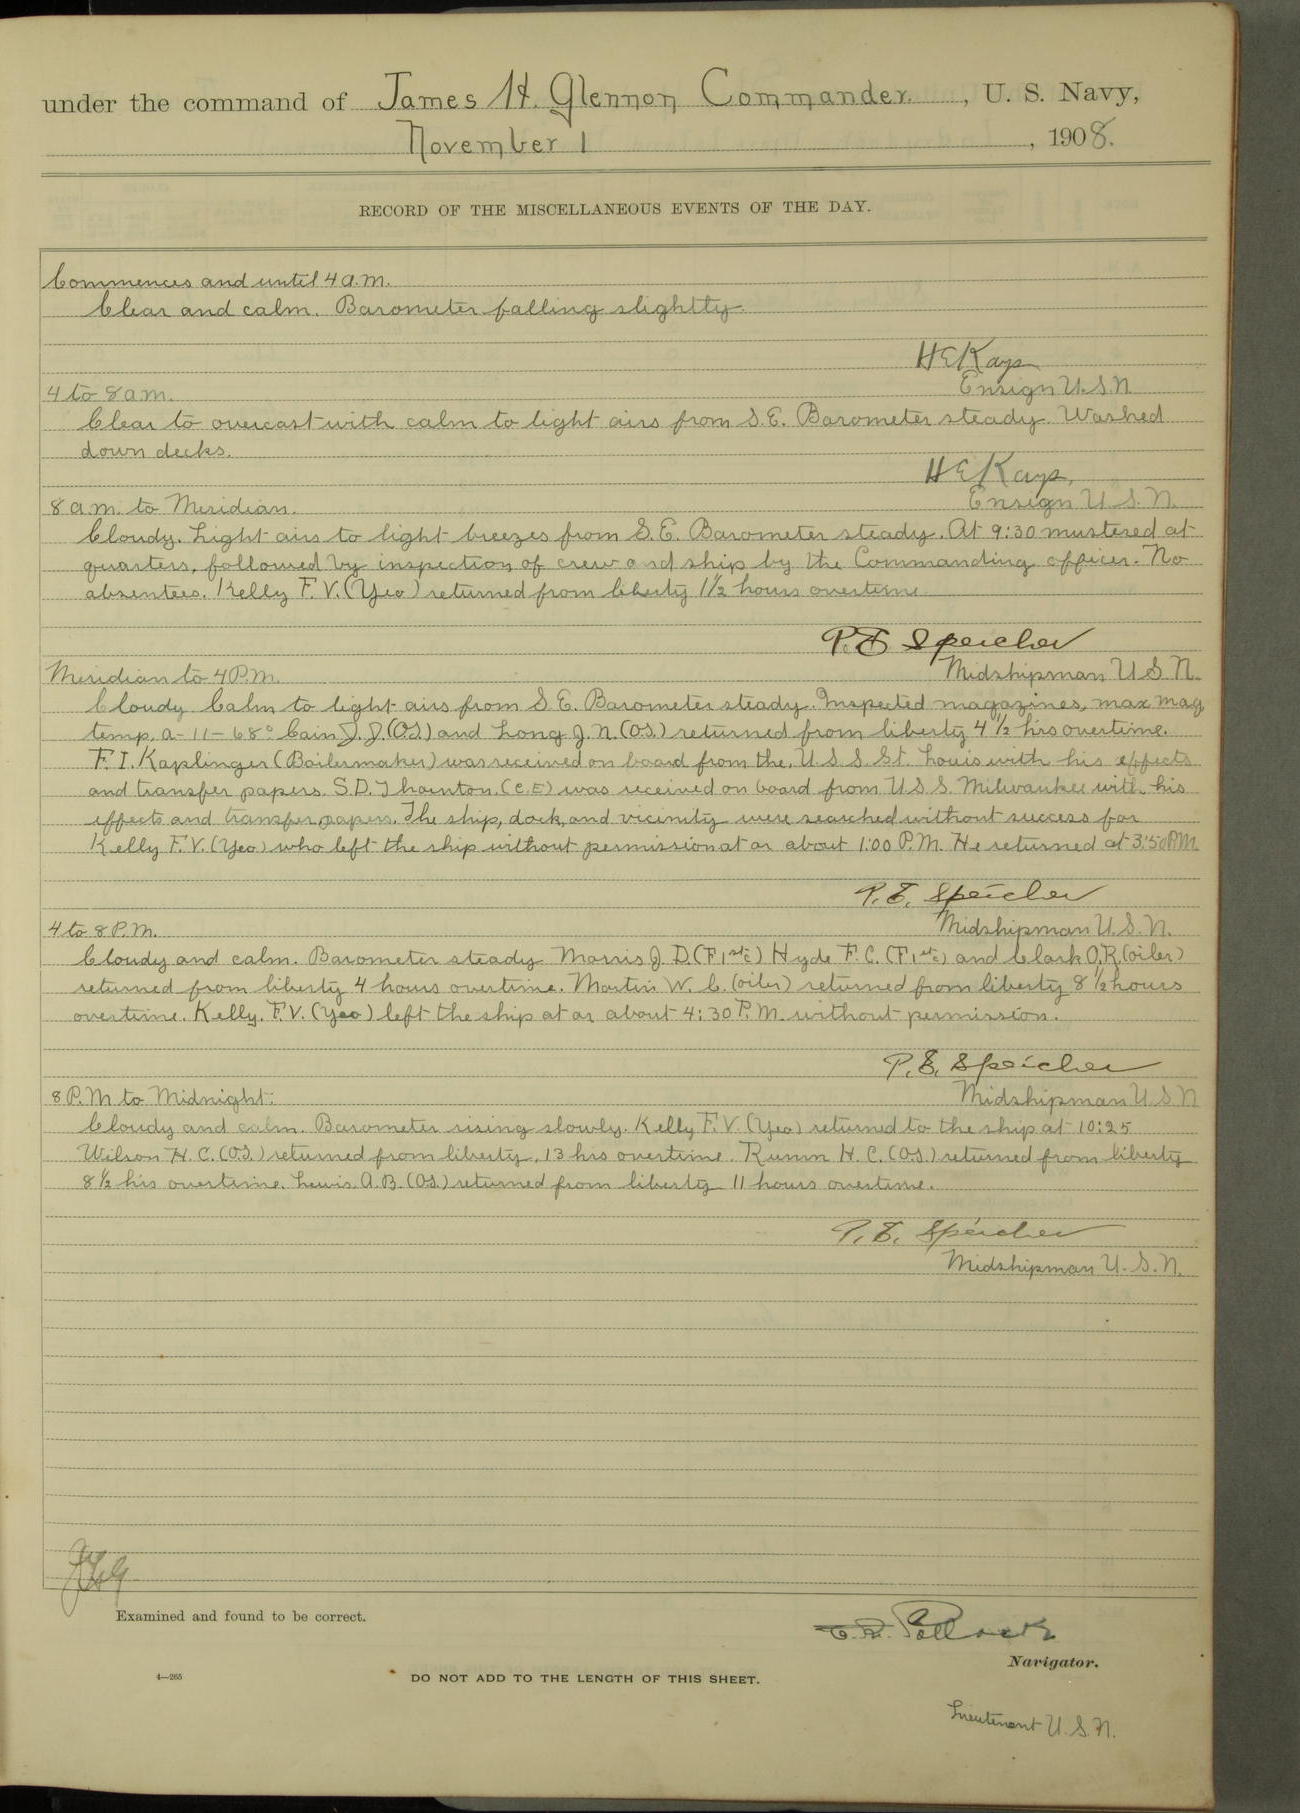 under the command of James H. Glennon Commander, U. S. Navy,
November 1, 1908.
RECORD OF THE MISCELLANEOUS EVENTS OF THE DAY.
Commences and until 4 a.m.
Clear and calm. Barometer falling slightly.
H E Kays
Ensign U.S.N.
4 to 8 a.m.
Clear to overcast with calm to light airs from S.E. Barometer steady. Washed
down decks.
H E Kays,
Ensign U.S.N.
8 a.m. to Meridian.
Cloudy. Light airs to light breezes from S.E. Barometer steady. At 9:30 mustered at
quarters, followed by inspection of crew and ship by the Commanding officer. No
absentees. Kelly F. V. (Yeo) returned from liberty 1½ hours overtime.
P. E. Speicher
Midshipman U S N.
Meridian to 4 P.M.
Cloudy Calm to light airs from S E. Barometer steady. Inspected magazines, max mag
temp. A-11-68° Cain J. J. (O.S.) and Long J. N. (O.S.) returned from liberty 4½ hrs overtime.
F. I. Kaplinger (Boilermaker) was received on board from the U.S.S. St. Louis with his effects
and transfer papers. S.D. Thornton. (C.E) was received on board from U S S. Milwaukee with his
effects and transfer papers. The ship, dock, and vicinity were searched without success for
Kelly F. V. (Yeo) who left the ship without permission at or about 1:00 P.M. He returned at 3:50 P.M.
P. E. Speicher
Midshipman U.S.N.
4 to 8 P.M.
Cloudy and calm. Barometer steady Morris J. D. (F 1st c) Hyde F. C. (F 1st c) and Clark O.R. (oiler)
returned from liberty 4 hours overtime. Martin W. C. (oiler) returned from liberty 8½ hours
overtime. Kelly. F. V. (Yeo) left the ship at or about 4:30 P.M. without permission.
P. E. Speicher
Midshipman U S N
8 P.M to Midnight:
Cloudy and calm. Barometer rising slowly. Kelly F. V. (Yeo) returned to the ship at 10:25
Wilson H. C. (O.S.) returned from liberty, 13 hrs overtime. Rumm H. C. (O.S.) returned from liberty
8½ hrs overtime. Lewis. A.B. (O.S.) returned from liberty 11 hours overtime.
P. E. Speicher
Midshipman U.S.N.
JHG
Examined and found to be correct.
Pollock
Navigator.
4—265
DO NOT ADD TO THE LENGTH OF THIS SHEET.
Lieutenant U.S.N.